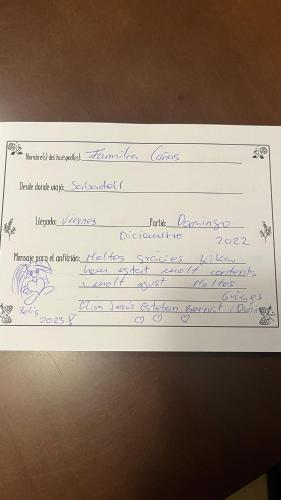 Nombre(s) del huésped(es): Familia Cañas
Desde donde viajó: Sabadell
Llegada: Viernes Partió: Domingo
Diciembre 2022
Mensaje para el anfitrión: Moltes gracies Kika
hem estat molt contents
i molt agust. Moltes
Gràcies
Elisa Jesús Esteban Bernat i
Feliç
2023!